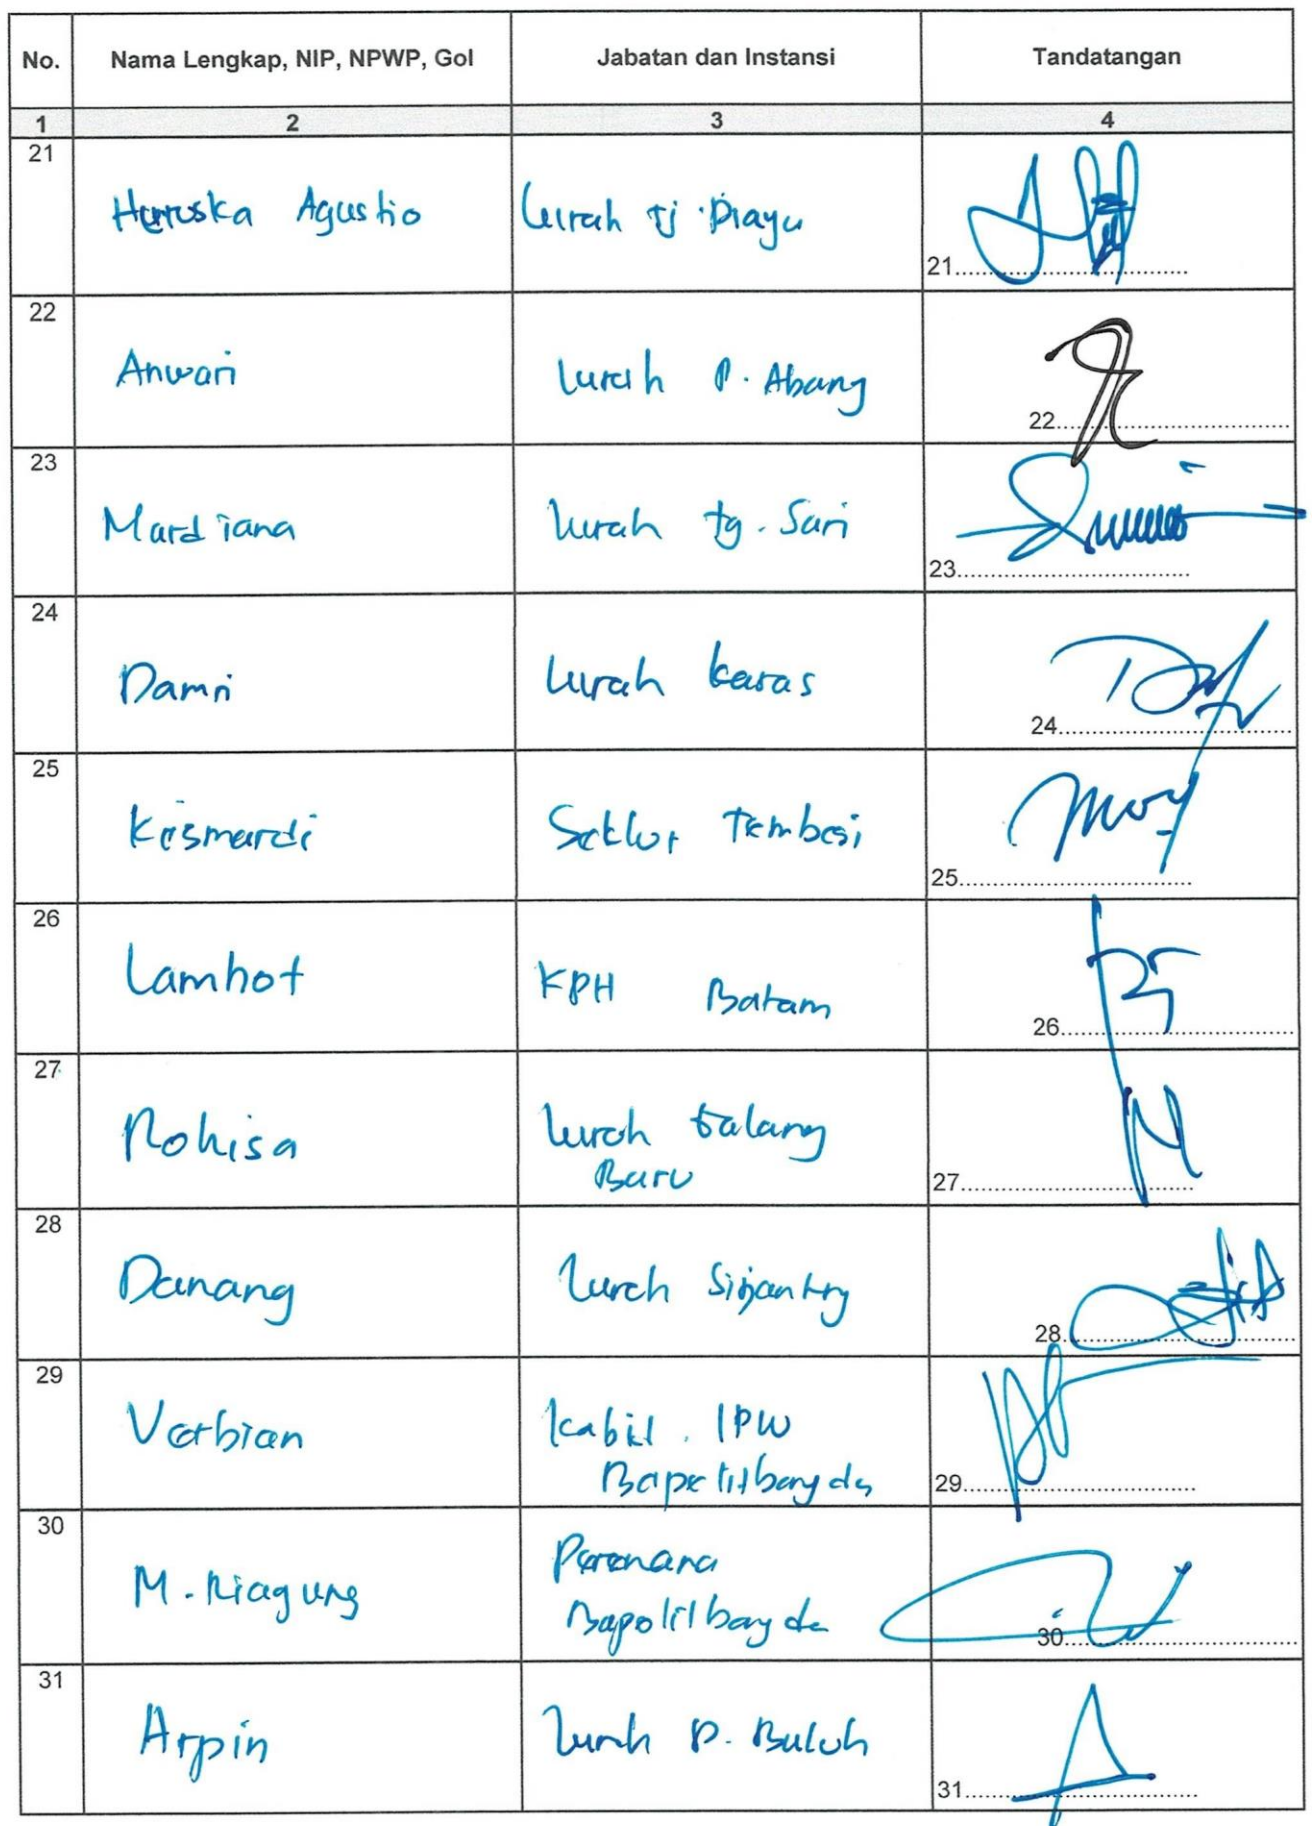 No. Nama Lengkap, NIP, NPWP, Gol Jabatan dan Instansi Tandatangan
1 2 3 4
21 Agustio Lurah tj. Piayu 21
22 Anwari Lurah P. Abang 22
23 Mardiana Lurah tg. Sari 23
24 Damri Lurah karas 24
25 Kismardi Seklur Tembesi 25
26 Lamhot KPH Batam 26
27 Rohisa Lurah Galang
Baru 27
28 Danang Lurah Sijantung 28
29 Verbian Kabid. IPW
Bapelitbangda 29
30 M. Riagung
Bapelitbangda 30
31 Arpin Lurah P. Buluh 31